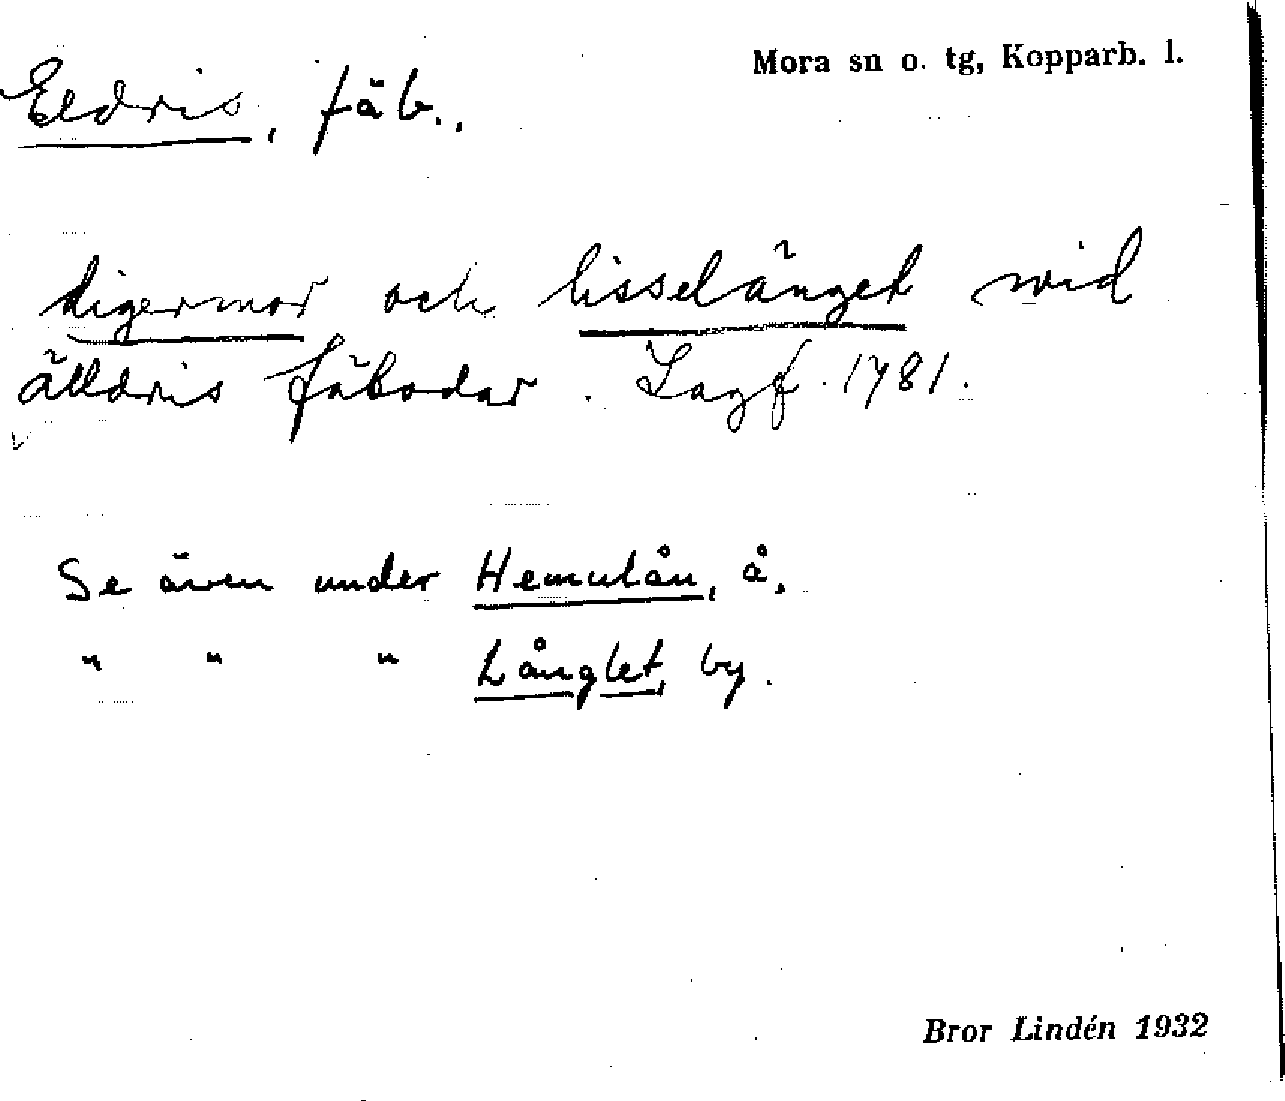 Mora sn o. tg, Kopparb. l.
Eldris, fäb.,
digermor och lisselänget wid
älldris fäbodar. Lagf. 1781.
Se även under Hemulån, å.
" " " Långlet, by.
Bror Lindén 1932